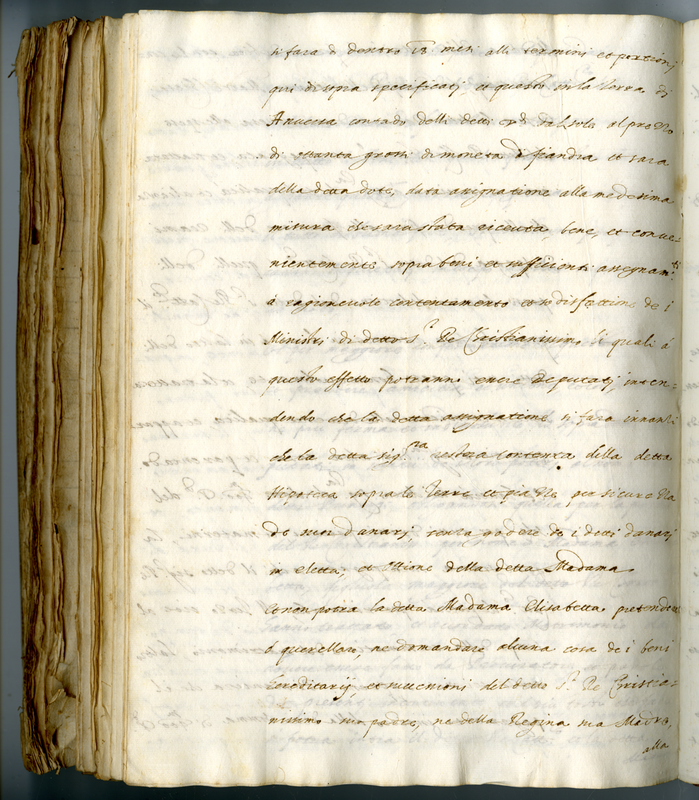 si fara di dentro 18 mesi alli termini et portioni
qui disopra specificati et questo in la Terra di
Anuersa contado delli detti d'Isola al prezzo
di ottanta grossi di moneta di fiandra et sara
della detta dote, data assignatione alla medesima
misura che sara stata riceuta, bene, et conue-
nientemente sopra beni et sufficienti assegnam.ti
à ragioneuole contentamento et sodisfattione de i
Ministri di detto S.r Re Cristianissimo li quali à
questo effetto potranno essere Deputati, inten-
dendo che la detta assignatione si fara innanzi
che la detta Sig.ra contenta della detta
Hipotecca sopra le Terre et per sicurezza
de suoi danari, senza godere de i detti danari
in eletta, et ottione della detta Madama
Et non potra la detta Madama Elisabetta pretendere
ò querellare, ne domandare alcuna cosa de i beni
hereditarij, et successioni del detto S.r Re Cristia-
nissimo suo padre, ne della Regina sua Madre,
alla